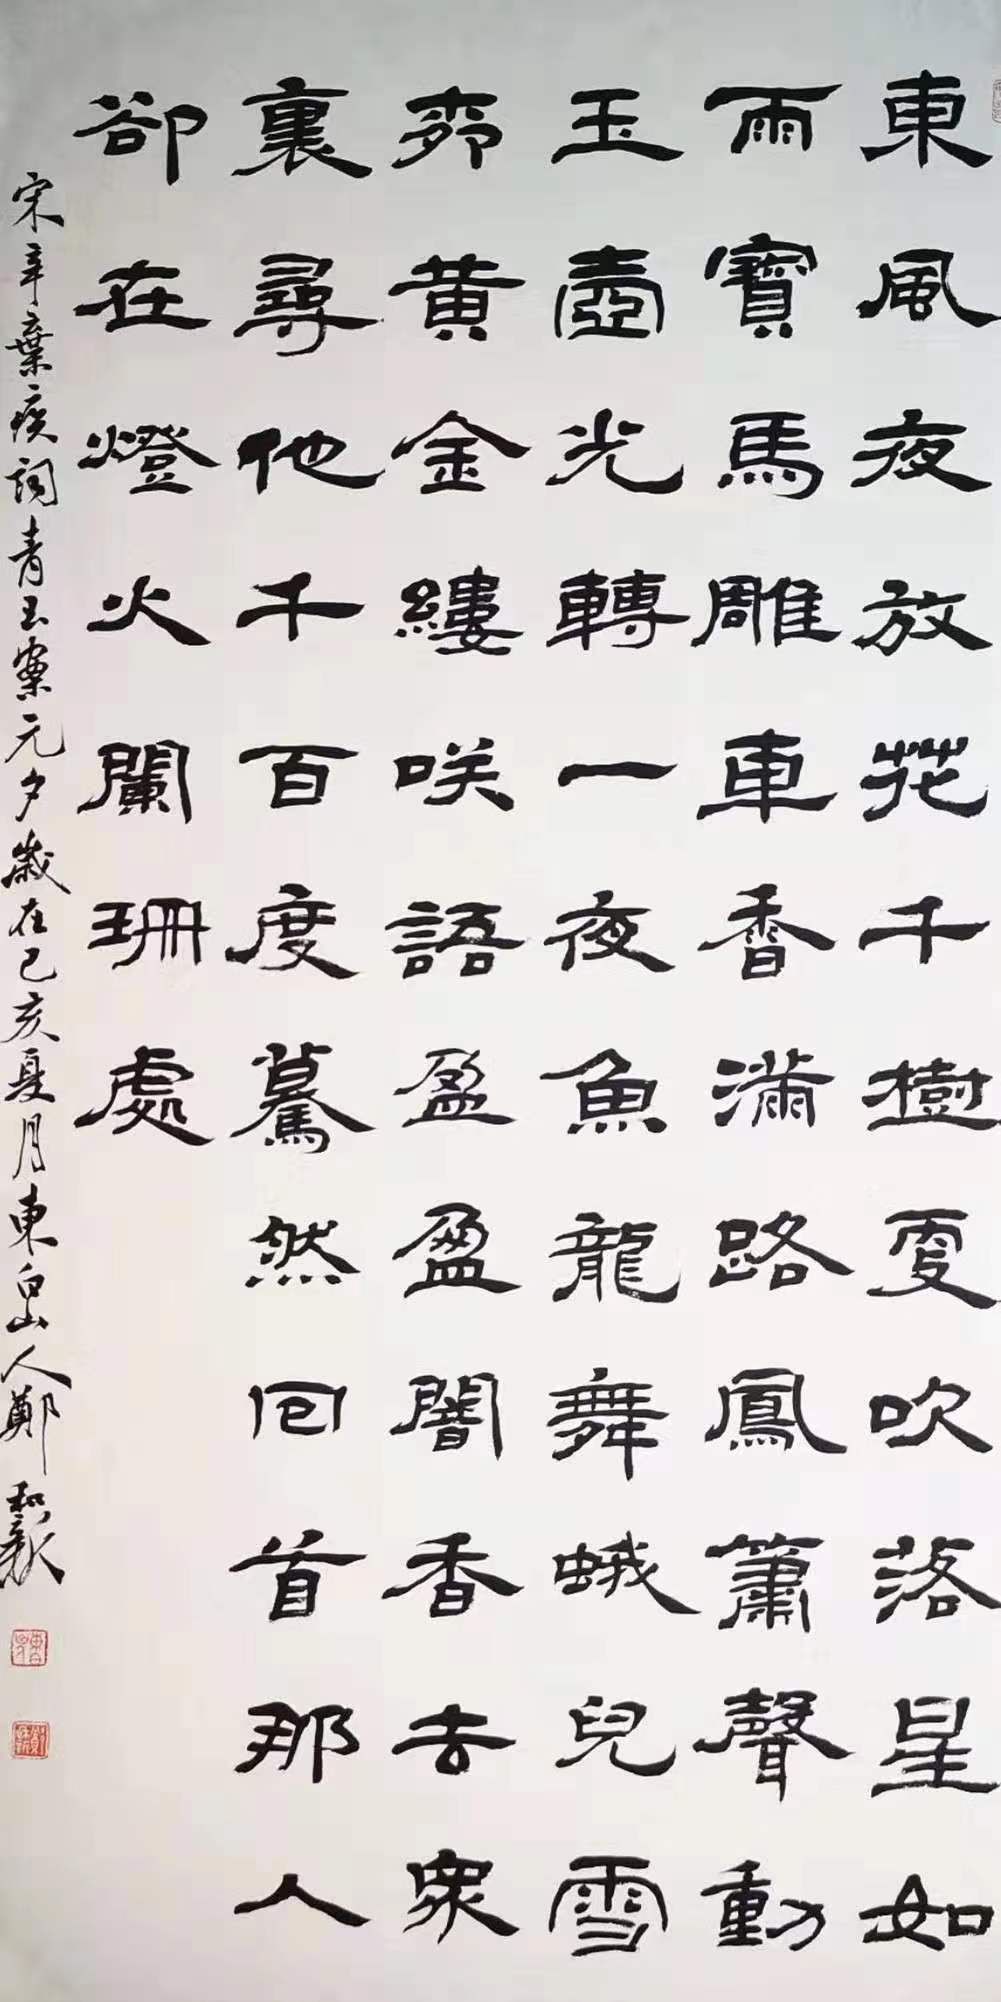 東風夜放花千樹更吹落星如
雨寶馬雕車香滿路鳳簫聲動
玉壺光轉一夜魚龍舞蛾兒雪
柳黄金縷咲語盈盈闇香去衆
裏尋他千百度驀然回首那人
卻在燈火闌珊處
宋辛棄疾詞青玉案元夕歲在己亥夏月東白山人鄭和新